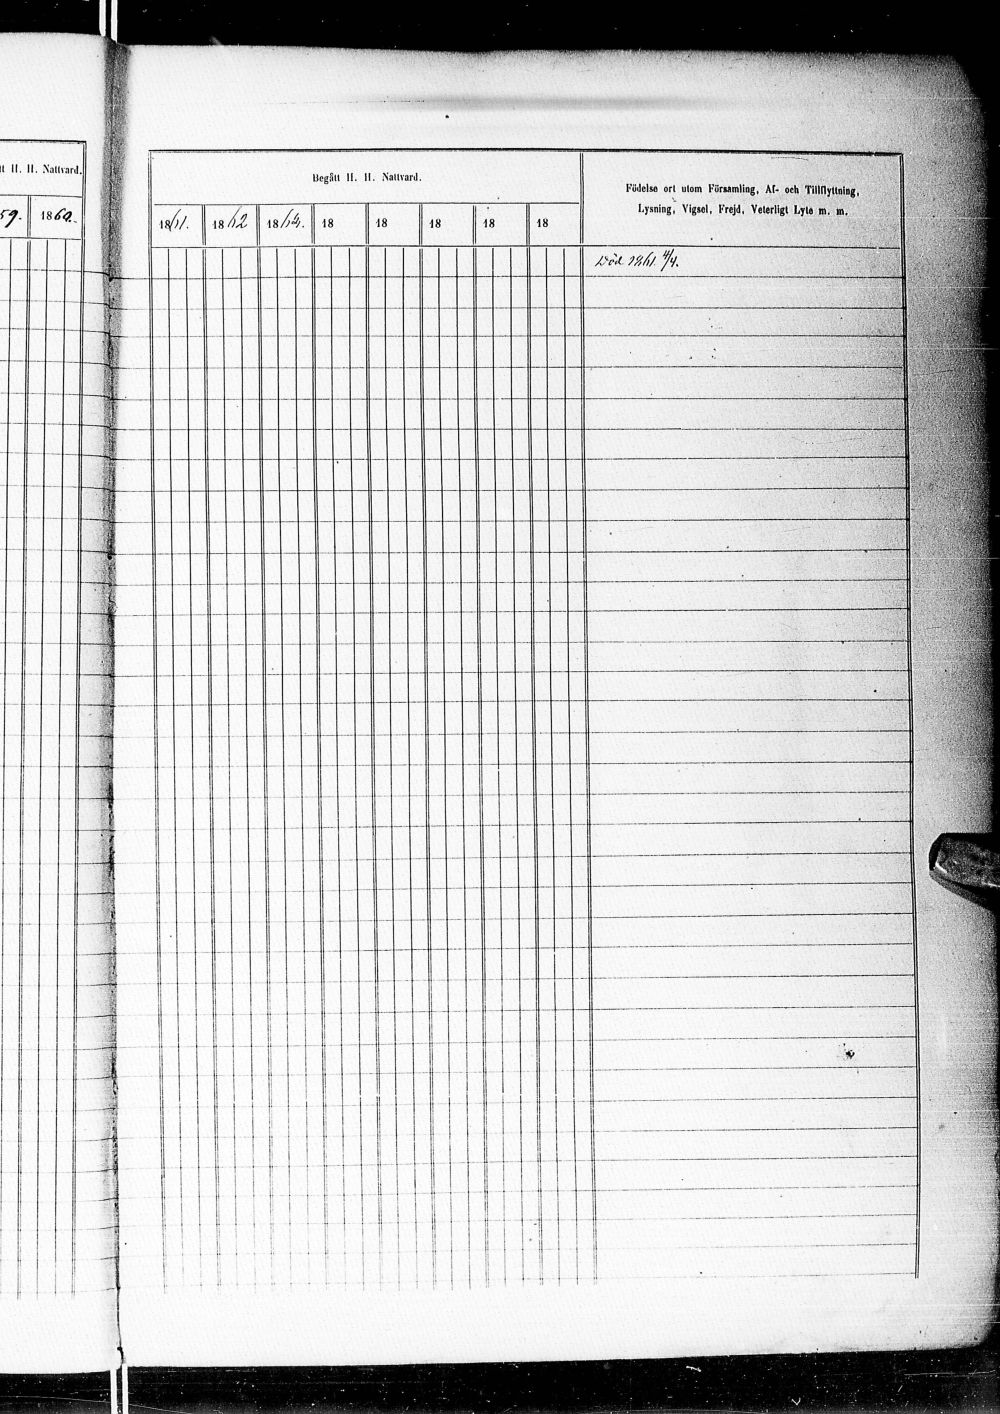 tt H. H. Nattvard.
59. 1860.
Begått H. H. Nattvard.
Födelse ort utom Församling, Af- och Tillflyttning,
Lysning, Vigsel, Frejd, Veterligt Lyte m. m.
1861. 1862 1863. 18 18 18 18 18
Död 1861 4/4.